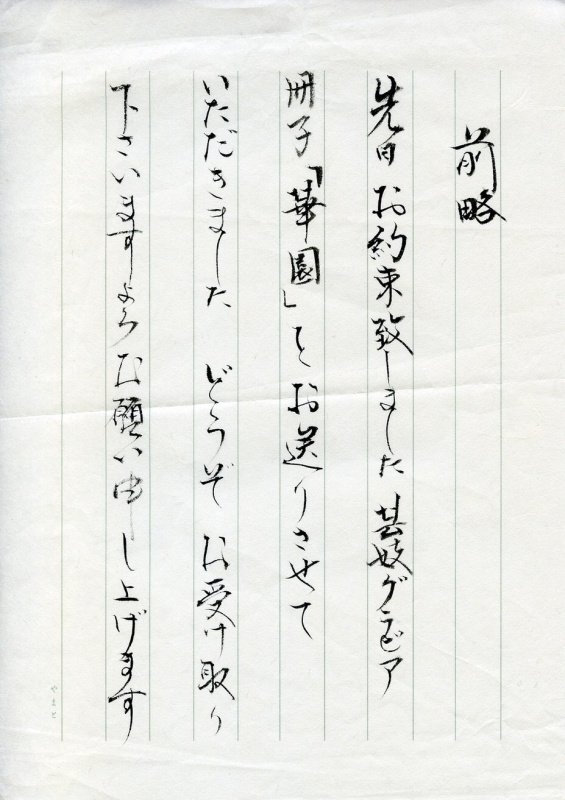 前略
先日お約束致しました芸妓グラビア
冊子「華園」をお送りさせて
いただきました どうぞお受け取り
下さいますようお願い申し上げます
やまと